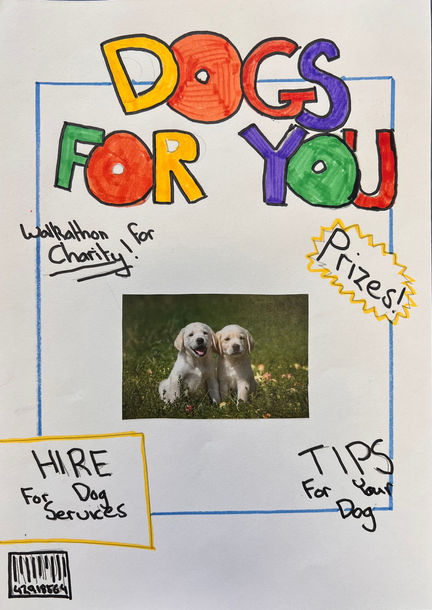 DOGS
FOR YOU
Walkathon for
Charity!
Prizes!
HIRE
For Dog
Services
TIPS
For Your
Dog
42918564